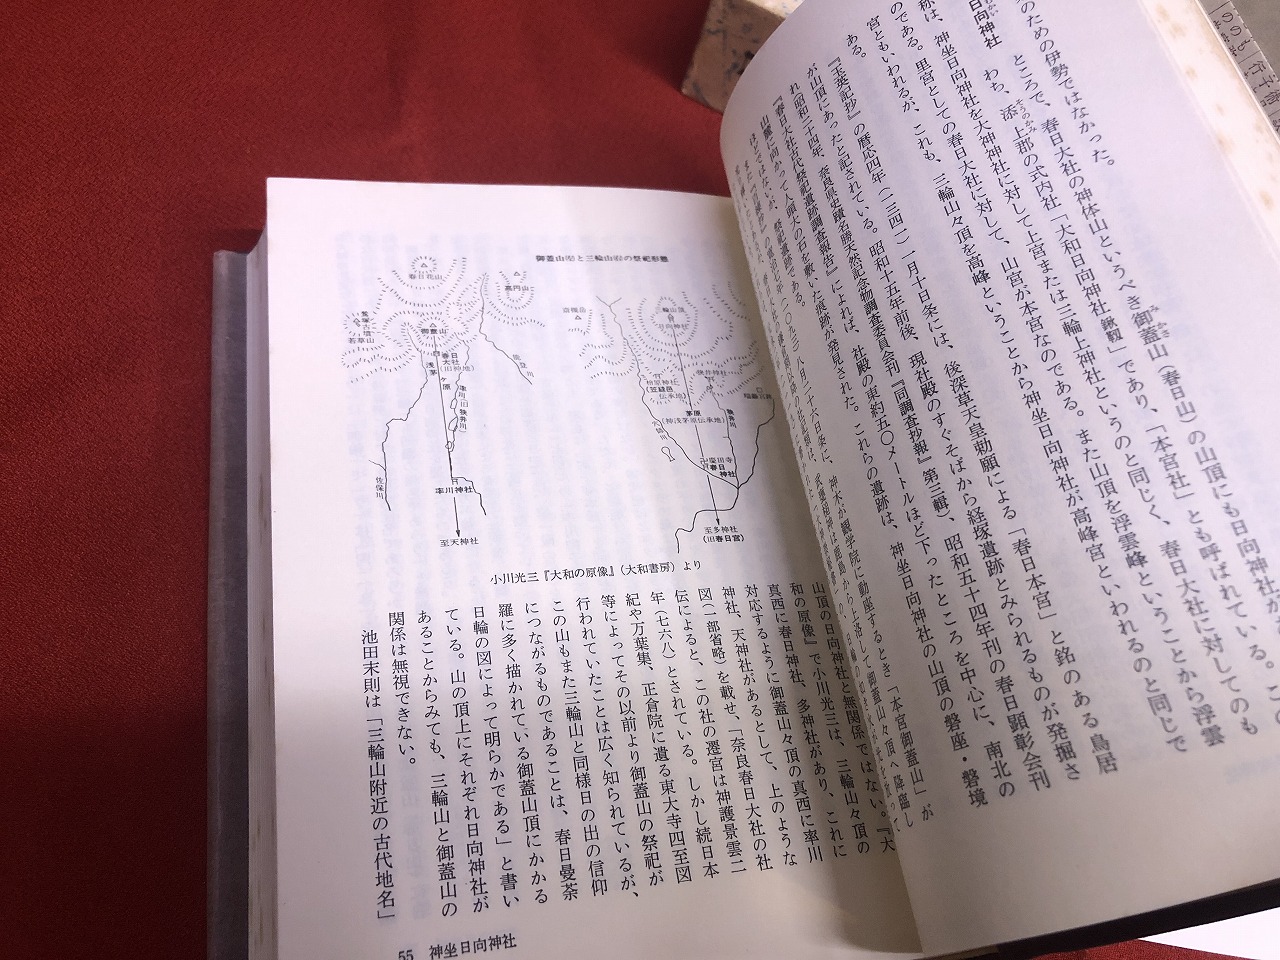 のための伊勢ではなかった。
ところで、春日大社の神体山というべき御蓋山（春日山）の山頂にも日向神社が
日向神社
わち、添上郡の式内社「大和日向神社鍬靫」であり、「本宮社」とも呼ばれている。
称は、神坐日向神社を大神神社に対して上宮または三輪上神社というのと同じく、春日大社に対してのも
のである。里宮としての春日大社に対して、山宮が本宮なのである。また山頂を浮雲峰ということから浮雲
宮ともいわれるが、これも、三輪山々頂を高峰ということから神坐日向神社が高峰宮といわれるのと同じで
ある。
『玉英記抄』の暦応四年（一三四一）一月十日条には、後深草天皇勅願による「春日本宮」と銘のある鳥居
が山頂にあったと記されている。昭和十五年前後、現社殿のすぐそばから経塚遺跡とみられるものが発掘さ
れ（昭和二十四年、奈良県史蹟名勝天然記念物調査委員会刊『同調査抄報』第三輯）、昭和五十四年刊の春日顕彰会刊
『春日大社古代祭祀遺跡調査報告』によれば、社殿の東約五〇メートルほど下ったところを中心に、南北の
山麓に向かって人頭大の石を敷いた痕跡が発見された。これらの遺跡は、神坐日向神社の山頂の磐座・磐境
ほどではないが、祭祀遺跡である。
御蓋山(左)と三輪山(右)の祭祀形態
春日花山
高円山
鶯塚古墳
若草山
御蓋山
春日大社
(旧神地)
浅茅ヶ原
能登川
率川(旧狭井川)
率川神社
佐保川
至天神社
斎槻岳
三輪山頂
日向神社
檜原神社
(笠縫邑伝承地)
狭井神社
茅原
(神浅茅原伝承地)
狭井川
慶田寺
春日神社
至多神社
(旧春日宮)
小川光三『大和の原像』（大和書房）より
山頂の日向神社と無関係ではない。『大
和の原像』で小川光三は、三輪山々頂の
真西に春日神社、多神社があり、これに
対応するように御蓋山々頂の真西に率川
神社、天神社があるとして、上のような
図（一部省略）を載せ、「奈良春日大社の社
伝によると、この社の遷宮は神護景雲二
年（七六八）とされている。しかし続日本
紀や万葉集、正倉院に遺る東大寺四至図
等によってその以前より御蓋山の祭祀が
行われていたことは広く知られているが、
この山もまた三輪山と同様日の出の信仰
につながるものであることは、春日曼荼
羅に多く描かれている御蓋山頂にかかる
日輪の図によって明らかである」と書い
ている。山の頂上にそれぞれ日向神社が
あることからみても、三輪山と御蓋山の
関係は無視できない。
池田末則は「三輪山附近の古代地名」
55 神坐日向神社